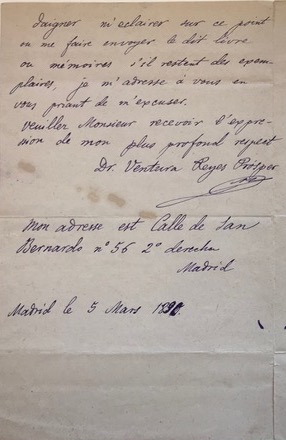 daigner m'eclairer sur ce point
ou me faire envoyer le dit livre
ou mémoires s'il restent des exem-
plaires, je m'adresse à vous en
vous priant de m'excuser.
Veuillez Monsieur recevoir l'expre-
sion de mon plus profond respect
Dr. Ventura Reyes Prósper
Mon adresse est Calle de San
Bernardo nº 56 2º derecha
Madrid
Madrid le 5 Mars